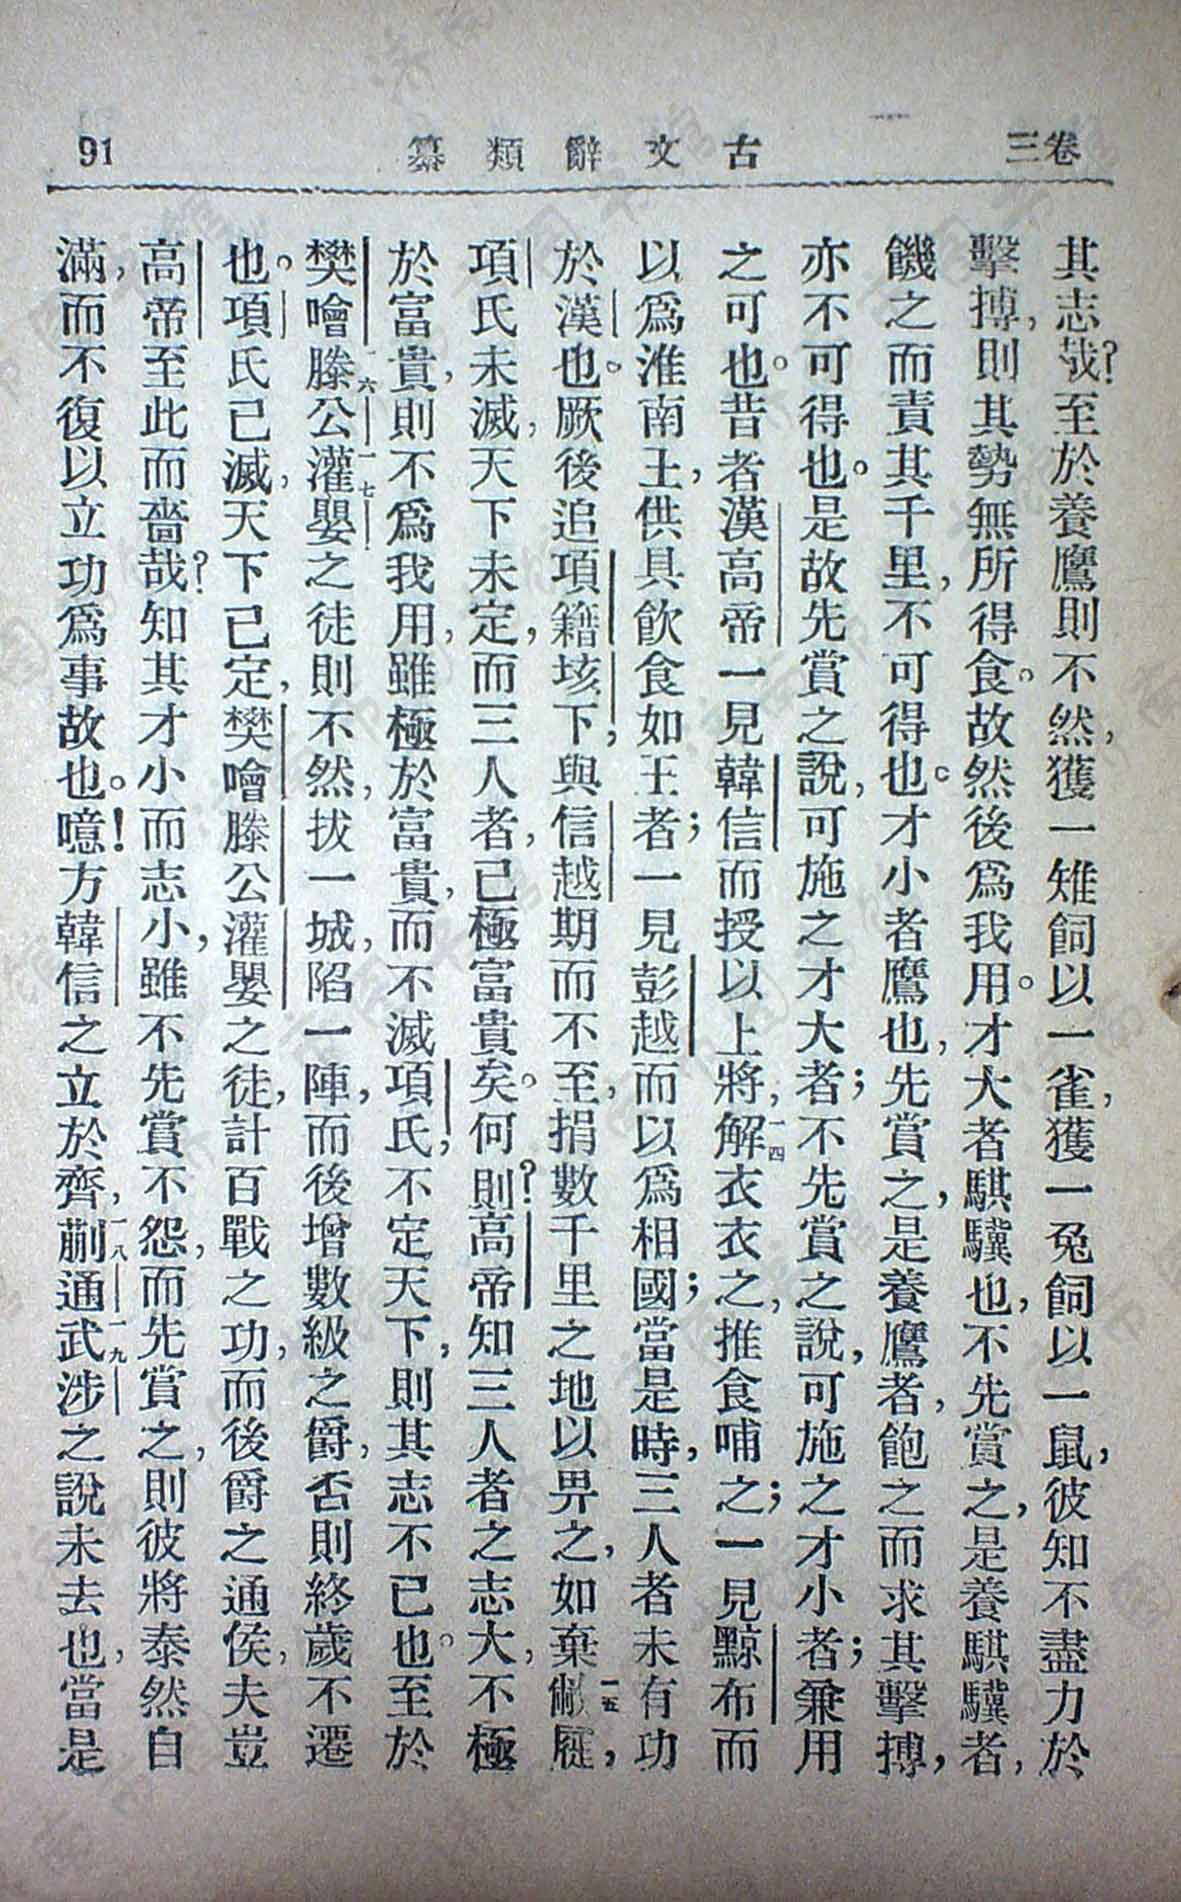 卷三
古文辭類纂
91
其志哉?至於養鷹則不然,獲一雉飼以一雀,獲一兔飼以一鼠,彼知不盡力於
擊搏,則其勢無所得食。故然後爲我用。才大者騏驥也,不先賞之,是養騏驥者,
饑之而責其千里,不可得也。才小者鷹也,先賞之,是養鷹者,飽之而求其擊搏,
亦不可得也。是故先賞之說,可施之才大者;不先賞之說,可施之才小者;兼用
之可也。昔者漢高帝一見韓信而授以上將,一四解衣衣之,推食哺之;一見黥布而
以爲淮南王,供具飲食如王者;一見彭越而以爲相國;當是時,三人者未有功
於漢也。厥後追項籍垓下,與信越期而不至,捐數千里之地以畀之,如棄敝一五屣,
項氏未滅,天下未定,而三人者,已極富貴矣。何則?高帝知三人者之志大,不極
於富貴,則不爲我用,雖極於富貴,而不滅項氏,不定天下,則其志不已也。至於
樊噲一六滕公一七灌嬰之徒則不然,拔一城,陷一陣,而後增數級之爵,否則終歲不遷
也。項氏已滅,天下已定,樊噲滕公灌嬰之徒,計百戰之功,而後爵之通侯,夫豈
高帝至此而嗇哉?知其才小而志小,雖不先賞不怨,而先賞之,則彼將泰然自
滿,而不復以立功爲事故也。噫!方韓信之立於齊,一八蒯通一九武涉之說未去也,當是